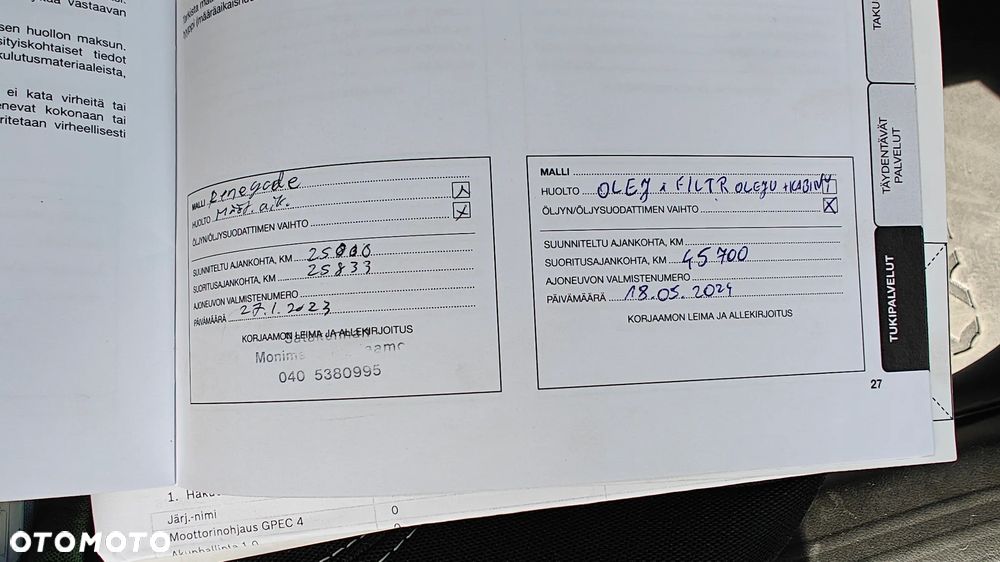 vastaavan
sen huollon maksun.
sityiskohtaiset tiedot
kulutusmateriaaleista,
ei kata virheitä tai
enevat kokonaan tai
ritetaan virheellisesti
MALLI Renegade
HUOLTO Määr. aik.
ÖLJYN/ÖLJYSUODATTIMEN VAIHTO
SUUNNITELTU AJANKOHTA, KM 25000
SUORITUSAJANKOHTA, KM 25833
AJONEUVON VALMISTENUMERO
PÄIVÄMÄÄRÄ 27.1.2023
KORJAAMON LEIMA JA ALLEKIRJOITUS
Satakunnan
040 5380995
MALLI
HUOLTO OLEJ i FILTR OLEJU + KABINY
ÖLJYN/ÖLJYSUODATTIMEN VAIHTO
SUUNNITELTU AJANKOHTA, KM
SUORITUSAJANKOHTA, KM 45700
AJONEUVON VALMISTENUMERO
PÄIVÄMÄÄRÄ 18.05.2024
KORJAAMON LEIMA JA ALLEKIRJOITUS
27
TAKU
TÄYDENTÄVÄT
PALVELUT
TUKIPALVELUT
1.
Järj.-nimi 0
Moottorinohjaus GPEC 4
OTOMOTO